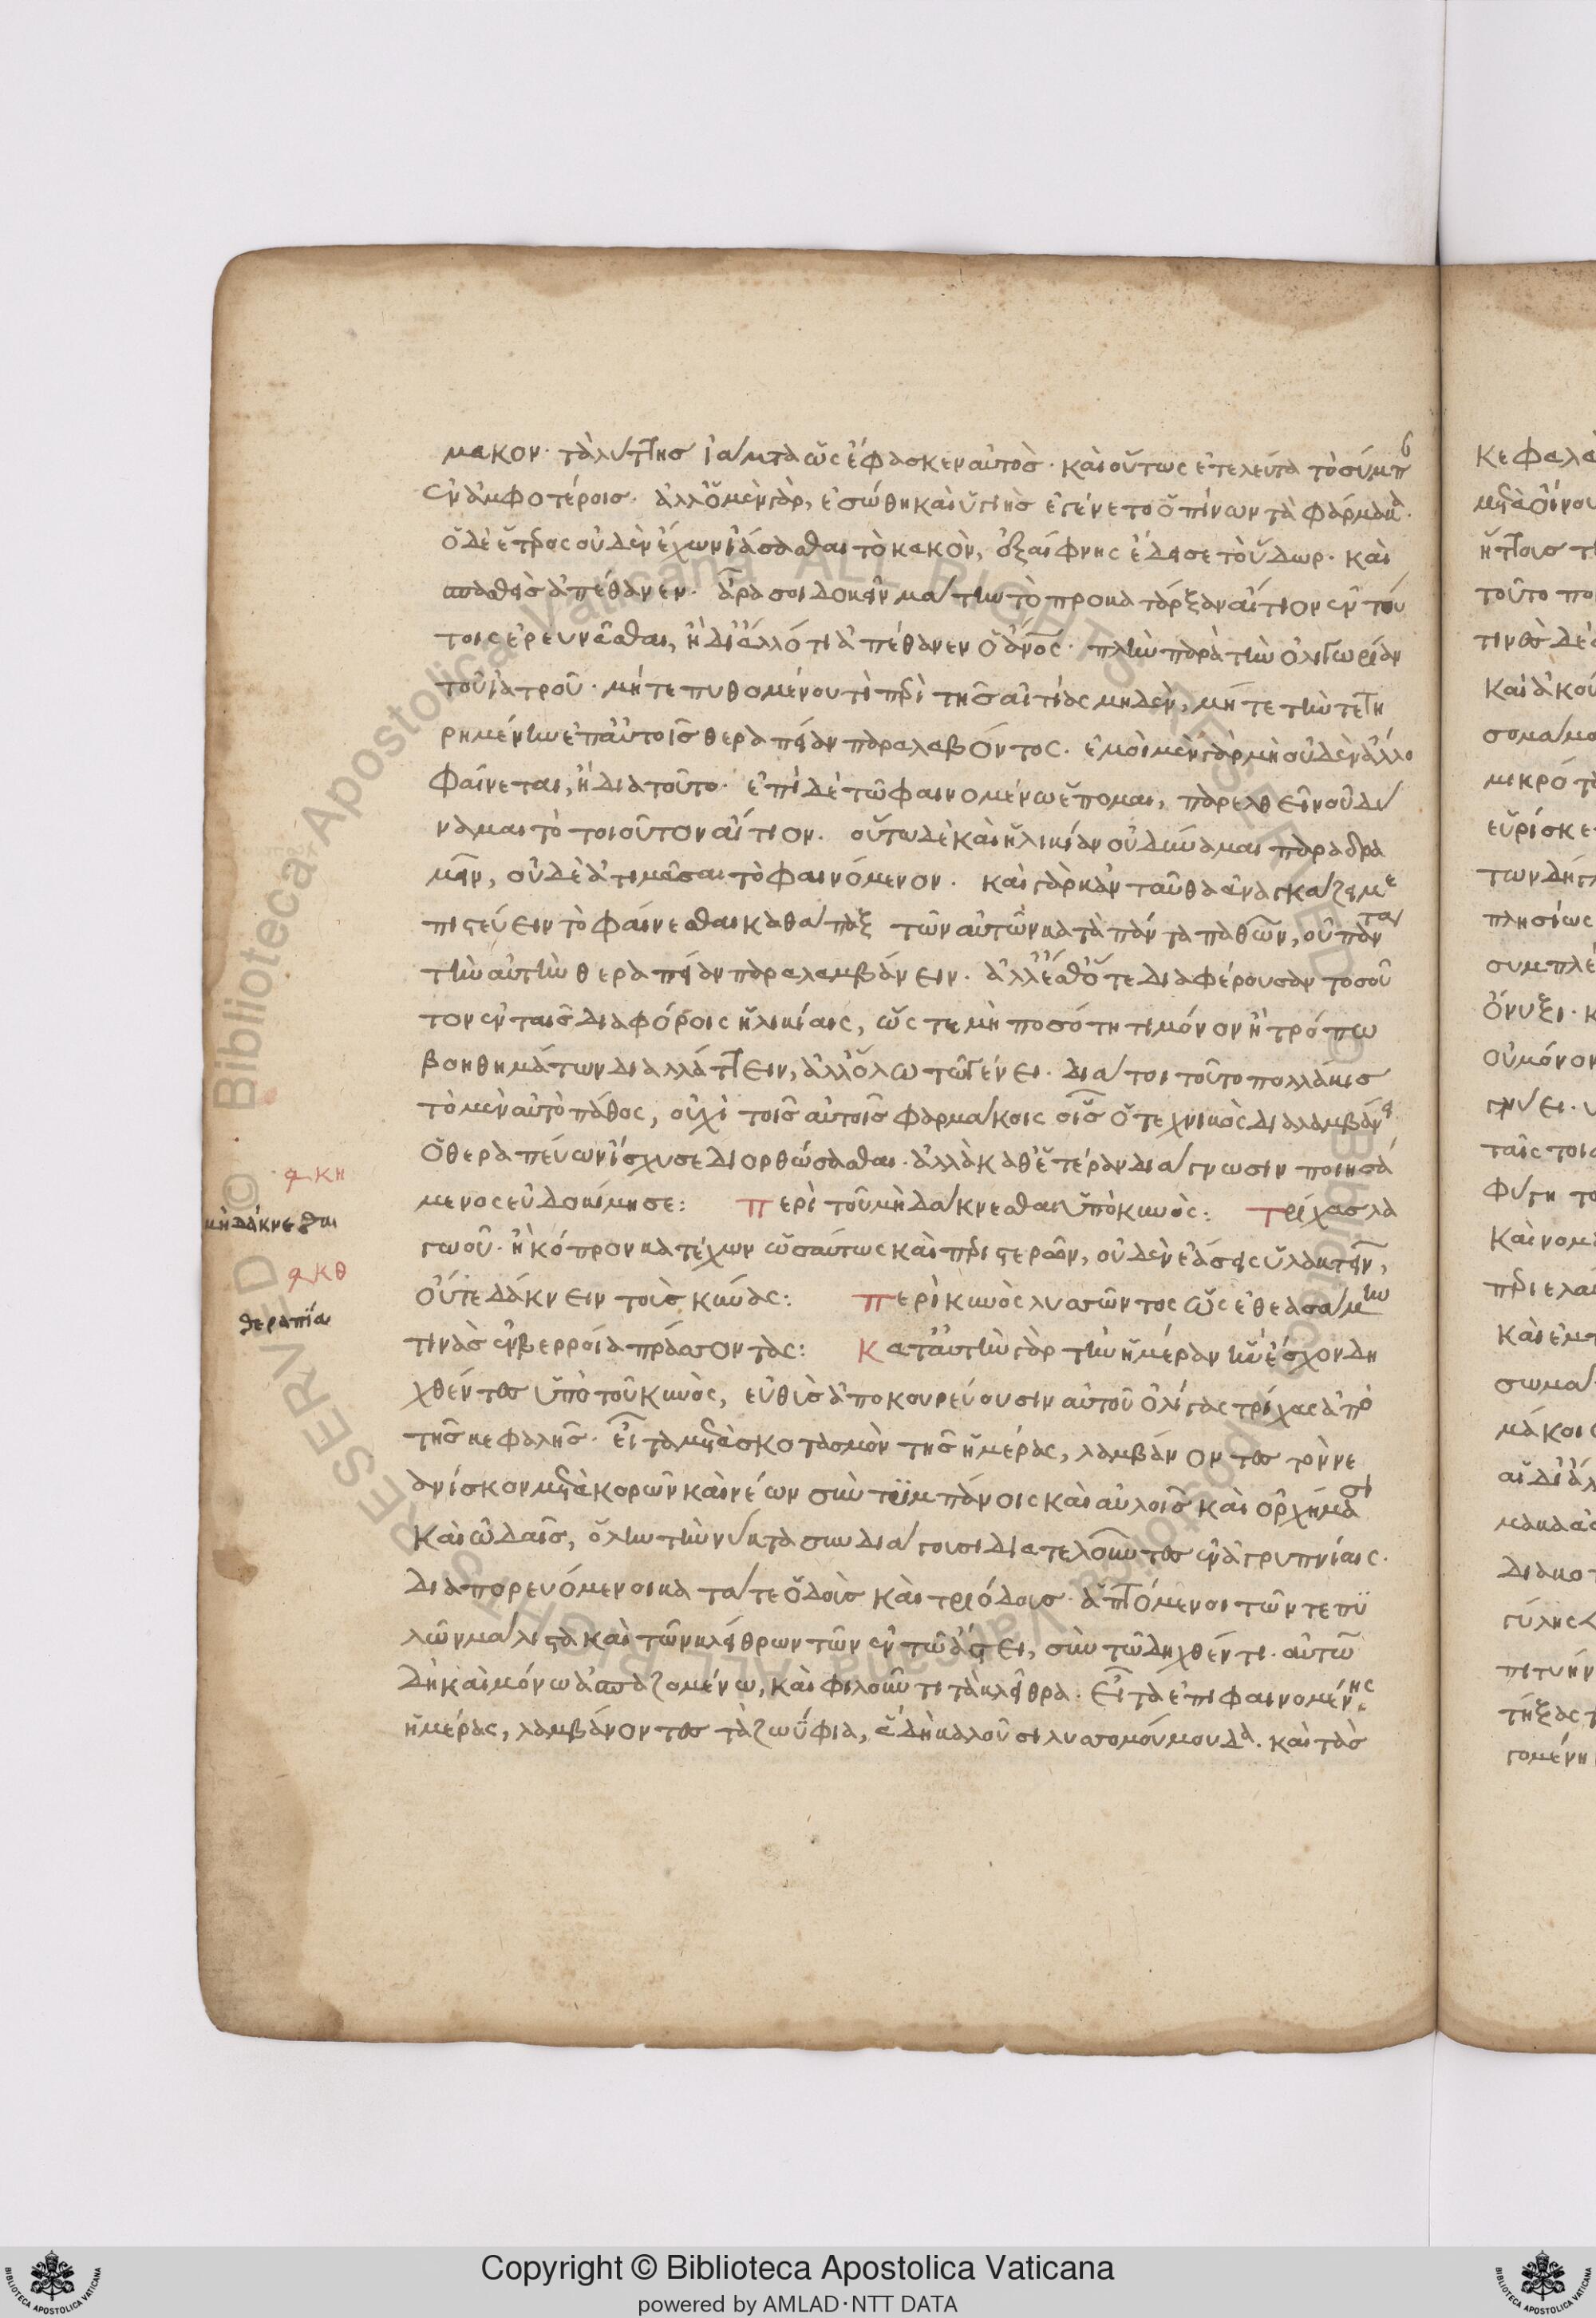 μακον· τὰ λύττης ἰάματα ὥς ἔφασκεν αὐτός· καὶ οὕτως ἐτελεύτα τὸ σύμπ
ἐν ἀμφοτέροις· ἀλλ' ὁ μὲν γὰρ, ἐσώθη καὶ ὑγιὴς ἐγένετο ὁ πίνων τὰ φάρμακα·
ὁ δὲ ἕτερος οὐδὲν ἔχων ἰάσασθαι τὸ κακὸν, ἐξαίφνης ἔδεισε τὸ ὕδωρ· καὶ
σπασθεὶς ἀπέθανεν· ἆρα σοι δοκεῖν μάτην τὸ προκατάρξαν αἴτιον ἐν τού
τοις ἐρευνᾶσθαι, ἢ δι' ἄλλό τι ἀπέθανεν ὁ ἄνος· πλὴν παρὰ τὴν ὀλιγωρίαν
τοῦ ἰατροῦ· μήτε πυθομένου τὶ περὶ τῆς αἰτίας μηδὲν, μήτε τὴν τετη
ρημένην ἐπ' αὐτοῖς θεραπείαν παραλαβόντος· ἐμοὶ μὲν γὰρ μὴ οὐδὲν ἄλλο
φαίνεται, ἢ διὰ τοῦτο· ἐπεὶ δὲ τῶ φαινομένω ἕπομαι, παρελθεῖν οὐ δύ
ναμαι τὸ τοιοῦτον αἴτιον· οὕτω δὲ καὶ ἡλικίαν οὐ δύναμαι παραδρα
μεῖν, οὐδὲ ἀτιμᾶσαι τὸ φαινόμενον· καὶ γὰρ κἀνταῦθα ἀναγκάζει με
πιστεύειν τὸ φαίνεσθαι καθάπαξ τῶν αὐτῶν κατὰ πάντα παθῶν, οὐ πάντα
τὴν αὐτὴν θεραπείαν παραλαμβάνειν· ἀλλ' ἔσθ' ὅτε διαφέρουσαν τοσοῦ
τον ἐν ταῖς διαφόροις ἡλικίαις, ὥς τε μὴ ποσότητι μόνον ἢ τρόπω
βοηθημάτων διαλλάττειν, ἀλλ' ὅλω τῶ γένει· διά τοι τοῦτο πολλάκις
τὸ μὲν αὐτὸ πάθος, οὐχὶ τοῖς αὐτοῖς φαρμάκοις οἷς ὁ τεχνικὸς διαλαμβάνει
ὁ θεραπεύων ἴσχυσε διορθώσασθαι· ἀλλὰ καθ' ἑτέραν διάγνωσιν ποιησά
μενος εὐδοκίμησε: Περὶ τοῦ μὴ δάκνεσθαι ὑπὸ κυνὸς: Τρίχας λα
φκη
μὴ δάκνεσθαι
γωοῦ· ἢ κόπρον κατέχων ὡσαύτως καὶ περιστερῶν, οὐδὲν ἐάσεις ὑλακτεῖν,
φκθ
οὔτε δάκνειν τοὺς κύνας: Περὶ κυνὸς λυσσῶντος ὥς ἐθεασάμην
θεραπεία
τινὰς ἐν βερροία πράσσοντας: Κατ' αὐτὴν γὰρ τὴν ἡμέραν ἣν ἔσχον δη
χθέντος ὑπὸ τοῦ κυνὸς, εὐθὺς ἀποκουρεύουσιν αὐτοῦ ὀλίγας τρίχας ἀπὸ
τῆς κεφαλῆς· εἶτα μετὰ σκοτασμὸν τῆς ἡμέρας, λαμβάνοντες τὸν νε
ανίσκον μετὰ κορῶν καὶ νέων σὺν τυμπάνοις καὶ αὐλοῖς καὶ ὀρχήμασι
καὶ ὠδαῖς, ὅλην τὴν νύκτα συνδιάγουσι διατελοῦντες ἐν ἀγρυπνίαις·
διαπορευόμενοι κατά τε ὁδοὺς καὶ τριόδους· ἁπτόμενοι τῶν τε πυ
λῶν μάλιστα καὶ τῶν κλείθρων τῶν ἐν τῶ ἄστει, σὺν τῶ δηχθέντι· αὐτῶ
δὴ καὶ μόνω ἀσπαζομένω, καὶ φιλοῦντι τὰ κλεῖθρα· εἶτα ἐπιφαινομένης
ἡμέρας, λαμβάνοντες τὰ ζωΰφια, ἃ δὴ καλοῦσι λυσσομούμουδα· καὶ τὰς
Copyright © Biblioteca Apostolica Vaticana
powered by AMLAD·NTT DATA